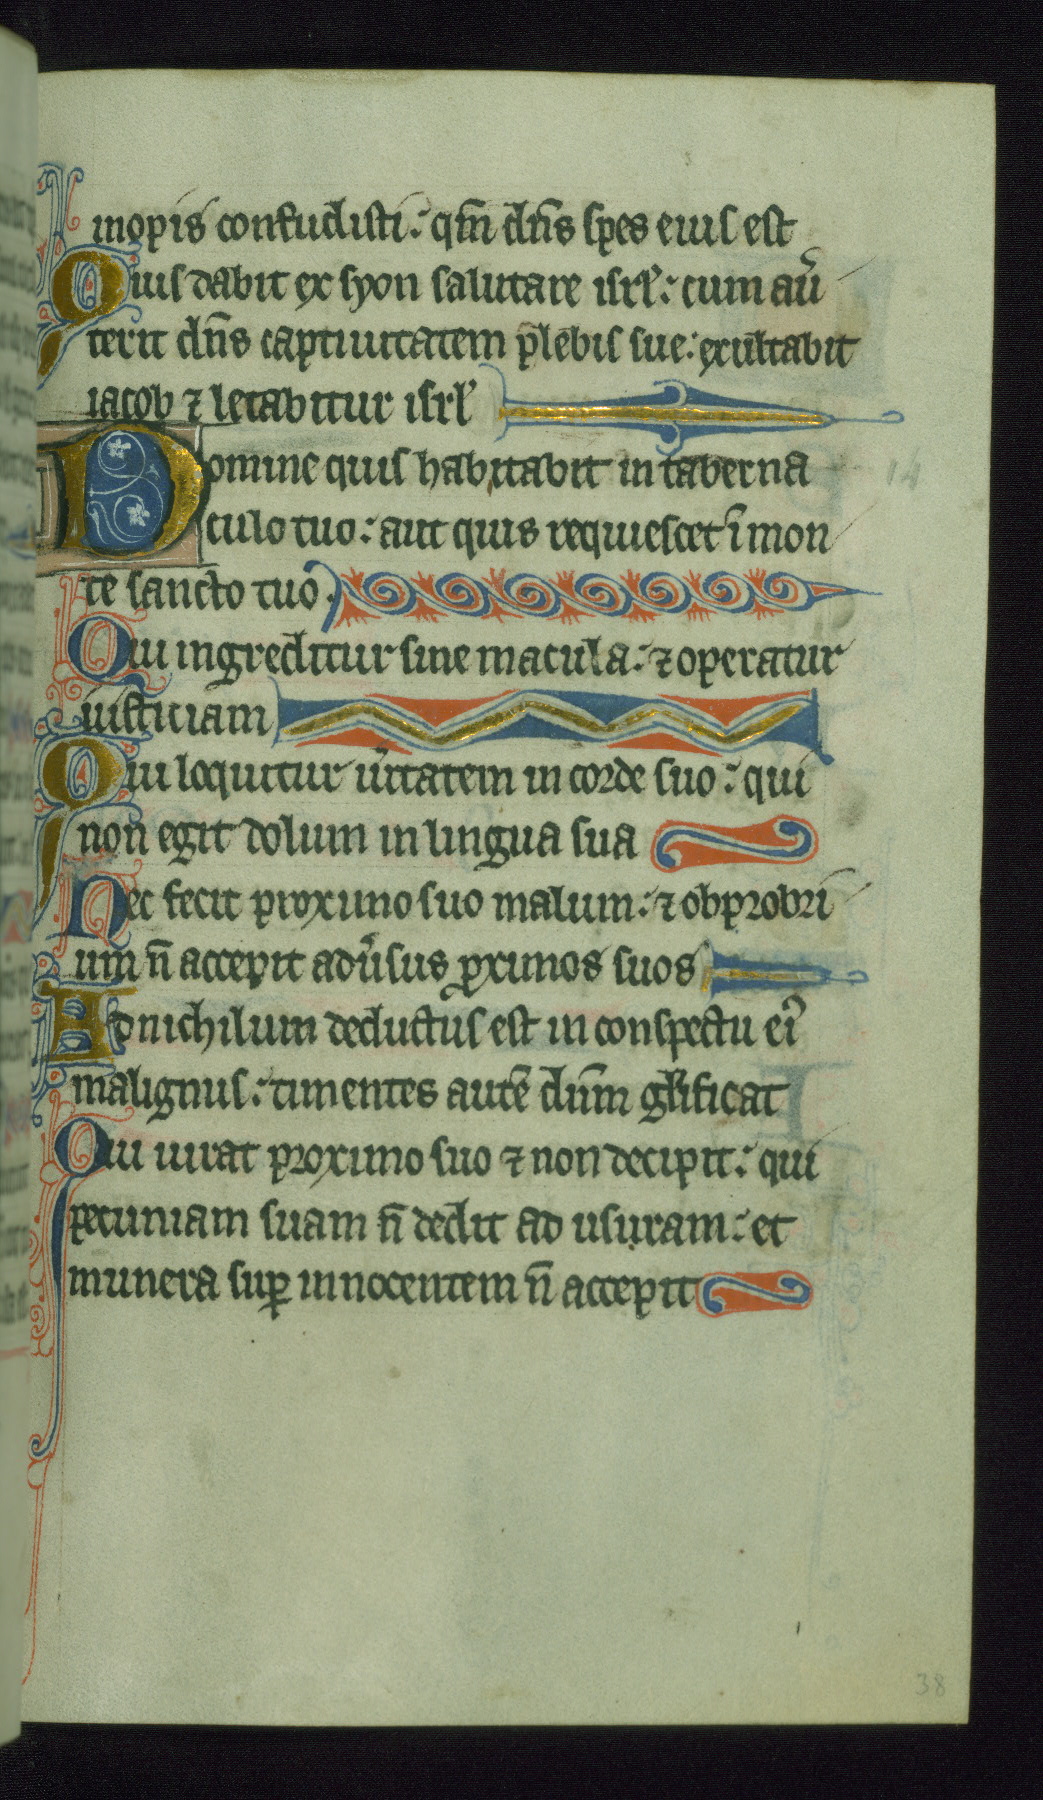 inopis confudisti: qm̄ dn̄s spes eius est
Quis dabit ex syon salutare isrl̓: cum au͛
terit dn̄s captiuitatem plebis sue: exultabit
iacob ⁊ letabitur isrl̓
Domine quis habitabit in taberna
14
culo tuo: aut quis requiescet ī mon
te sancto tuo.
Qui ingreditur sine macula: ⁊ operatur
iusticiam
Qui loquitur u͛itatem in corde suo: qui
non egit dolum in lingua sua
Nec fecit proximo suo malum: ⁊ obprobri
um n̄ accepit adu͛sus ꝓximos suos
Ad nichilum deductus est in conspectu ei᾿
malignus: timentes autē dn̄m gl̓ificat
Qui iurat proximo suo ⁊ non decipit: qui
pecuniam suam n̄ dedit ad usuram: et
munera suꝑ innocentem n̄ accepit
38